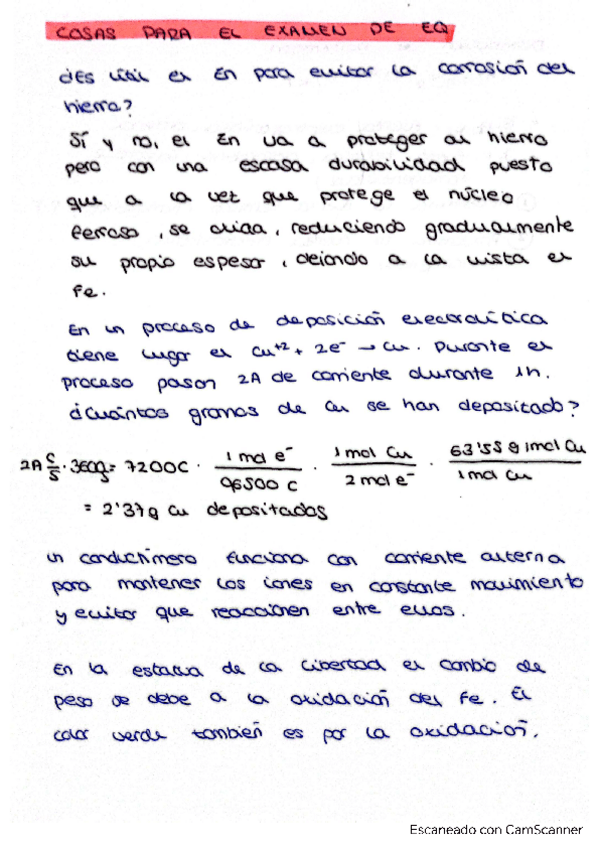 COSAS PARA EL EXAMEN DE EQ
¿Es útil el Zn para evitar la corrosión del
hierro?
Sí y no, el Zn va a proteger al hierro
pero con una escasa durabilidad puesto
que a la vez que protege el núcleo
ferroso, se oxida, reduciendo gradualmente
su propio espesor, dejando a la vista el
Fe.
En un proceso de deposición electrolítica
tiene lugar el Cu+2 + 2e- → Cu. Durante el
proceso pasan 2A de corriente durante 1h.
¿Cuántos gramos de Cu se han depositado?
2A C/s · 3600s = 7200C · 1 mol e-/96500 C · 1 mol Cu/2 mol e- · 63'55 g 1mol Cu/1 mol Cu
= 2'37g Cu depositados
Un conductímero funciona con corriente alterna
para mantener los iones en constante movimiento
y evitar que reaccionen entre ellos.
En la estatua de la Libertad el cambio de
peso se debe a la oxidación del Fe. El
color verde también es por la oxidación.
Escaneado con CamScanner